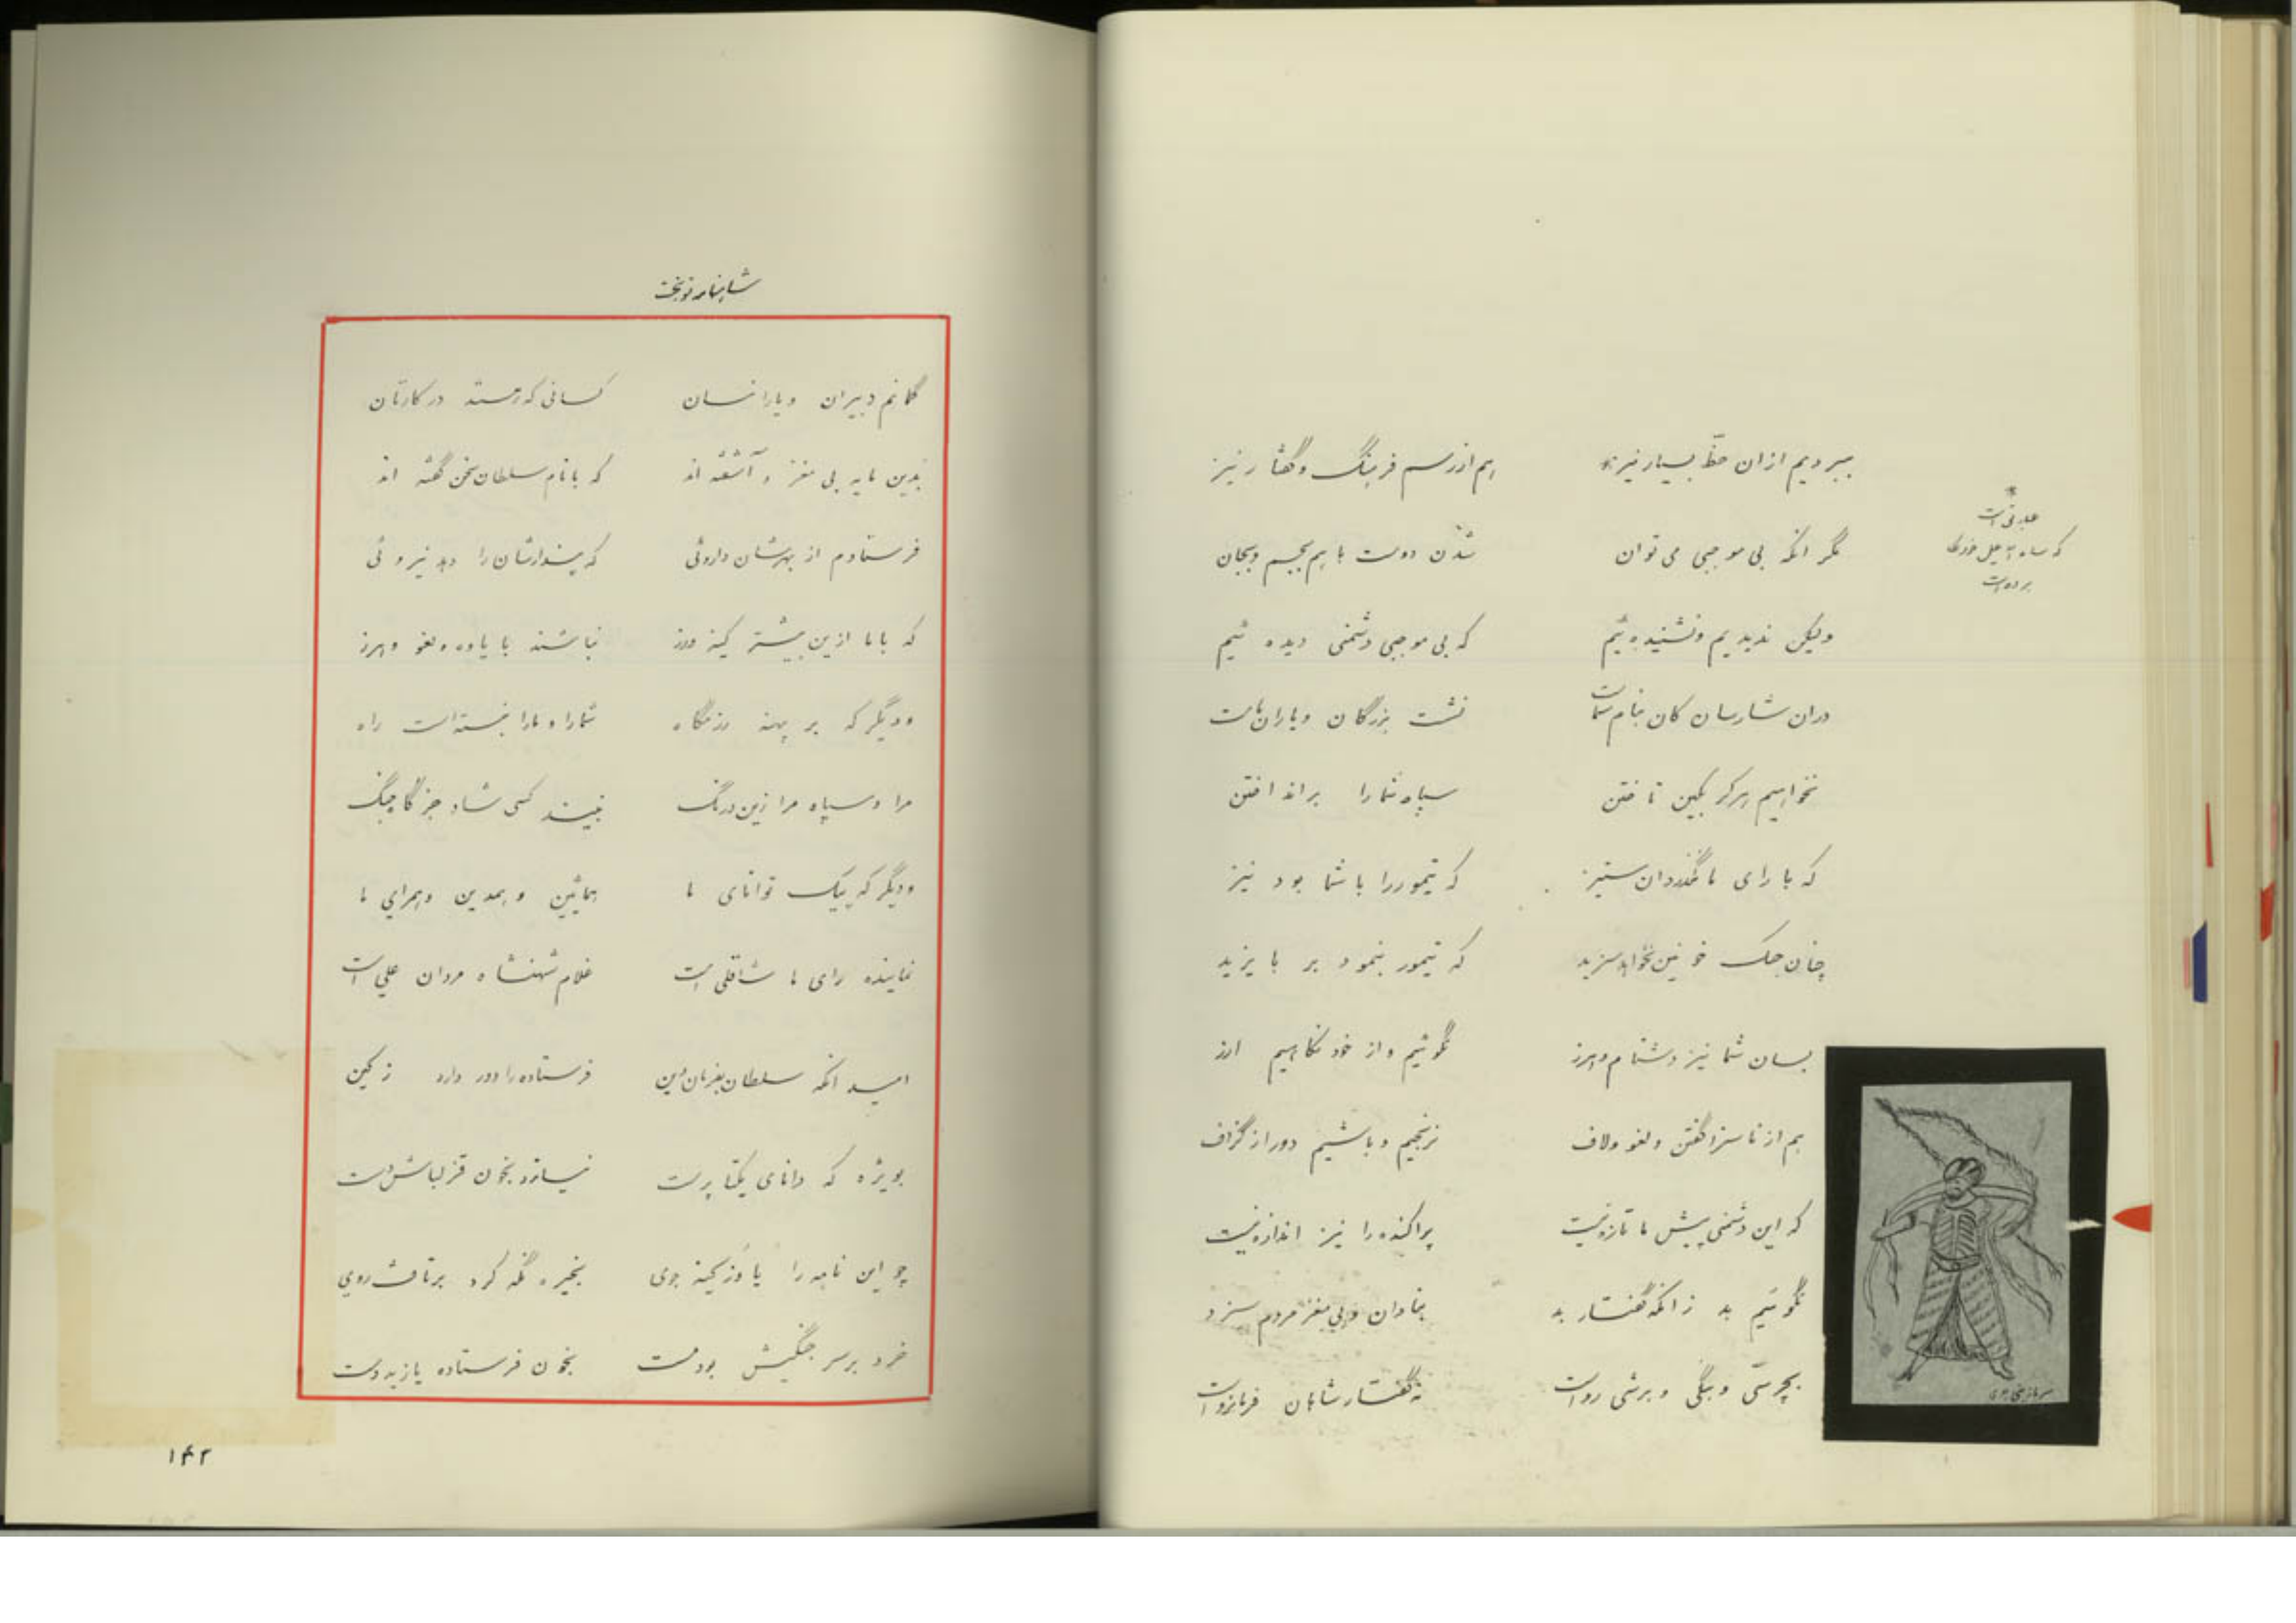 ببردیم ازان حظّ بسیار نیز*
هم از رسم فرهنگ و گفتار نیز
مگر انکه بی موجبی می توان
شدن دوست با هم بجسم و بجان
ولیکن ندیدیم و نشنیده ئیم
که بی موجبی دشمنی دیده ئیم
دران شارسان کان بنام شماست
نشست بزرگان و یاران ماست
نخواهیم هرگز بکین تاختن
سپاه شما را برانداختن
که با رای ما نگذرد ان ستیز
که تیمور را با شما بود نیز
چنان جنگ خونین نخواهد سزید
که تیمور بنمود بر بایزید
بسان شما نیز دشنام و هرز
نگوئیم و از خود نکاهیم ارز
هم از ناسزا گفتن و لغو و لاف
نرنجیم و باشیم دور از گزاف
که این دشمنی پیش ما تازه نیست
پراکنده را نیز اندازه نیست
نگوئیم بد زانکه گفتار بد
بنادان و بی مغز مردم سزد
بچرسی و بنگی و برشی رواست
نه گفتار شاهان فرمانرواست
*
که شاه اسمعیل
برده است
شاهنامه نوبخت
گمانم دبیران و یارانسان
کسانی که هستند در کارتان
بدین مایه بی مغز و آشفته اند
که با نام سلطان سخن گفته اند
فرستادم از بهرشان داروئی
که پندارشان را دهد نیروئی
که با ما ازین بیشتر کینه ورز
نباشند با یاوه و لغو و هرز
و دیگر که بر پهنه رزمگاه
شما را و ما را نبسته است راه
مرا و سپاه مرا زین درنگ
نبیند کسی شاد جز گاه جنگ
و دیگر که پیک توانای ما
همآئین و همدین و همرای ما
نماینده رای ما شاقلی است
غلام شهنشاه مردان علی است
امید انکه سلطان بفرمان دین
فرستاده را دور دارد ز کین
بویژه که دانای یکتاپرست
نیازد بخون قزلباش دست
چو این نامه را یاوز کینه جوی
بخیره نگه کرد برتافت روی
خرد بر سر جنگیش بود مست
بخون فرستاده یازید دست
۱۴۲